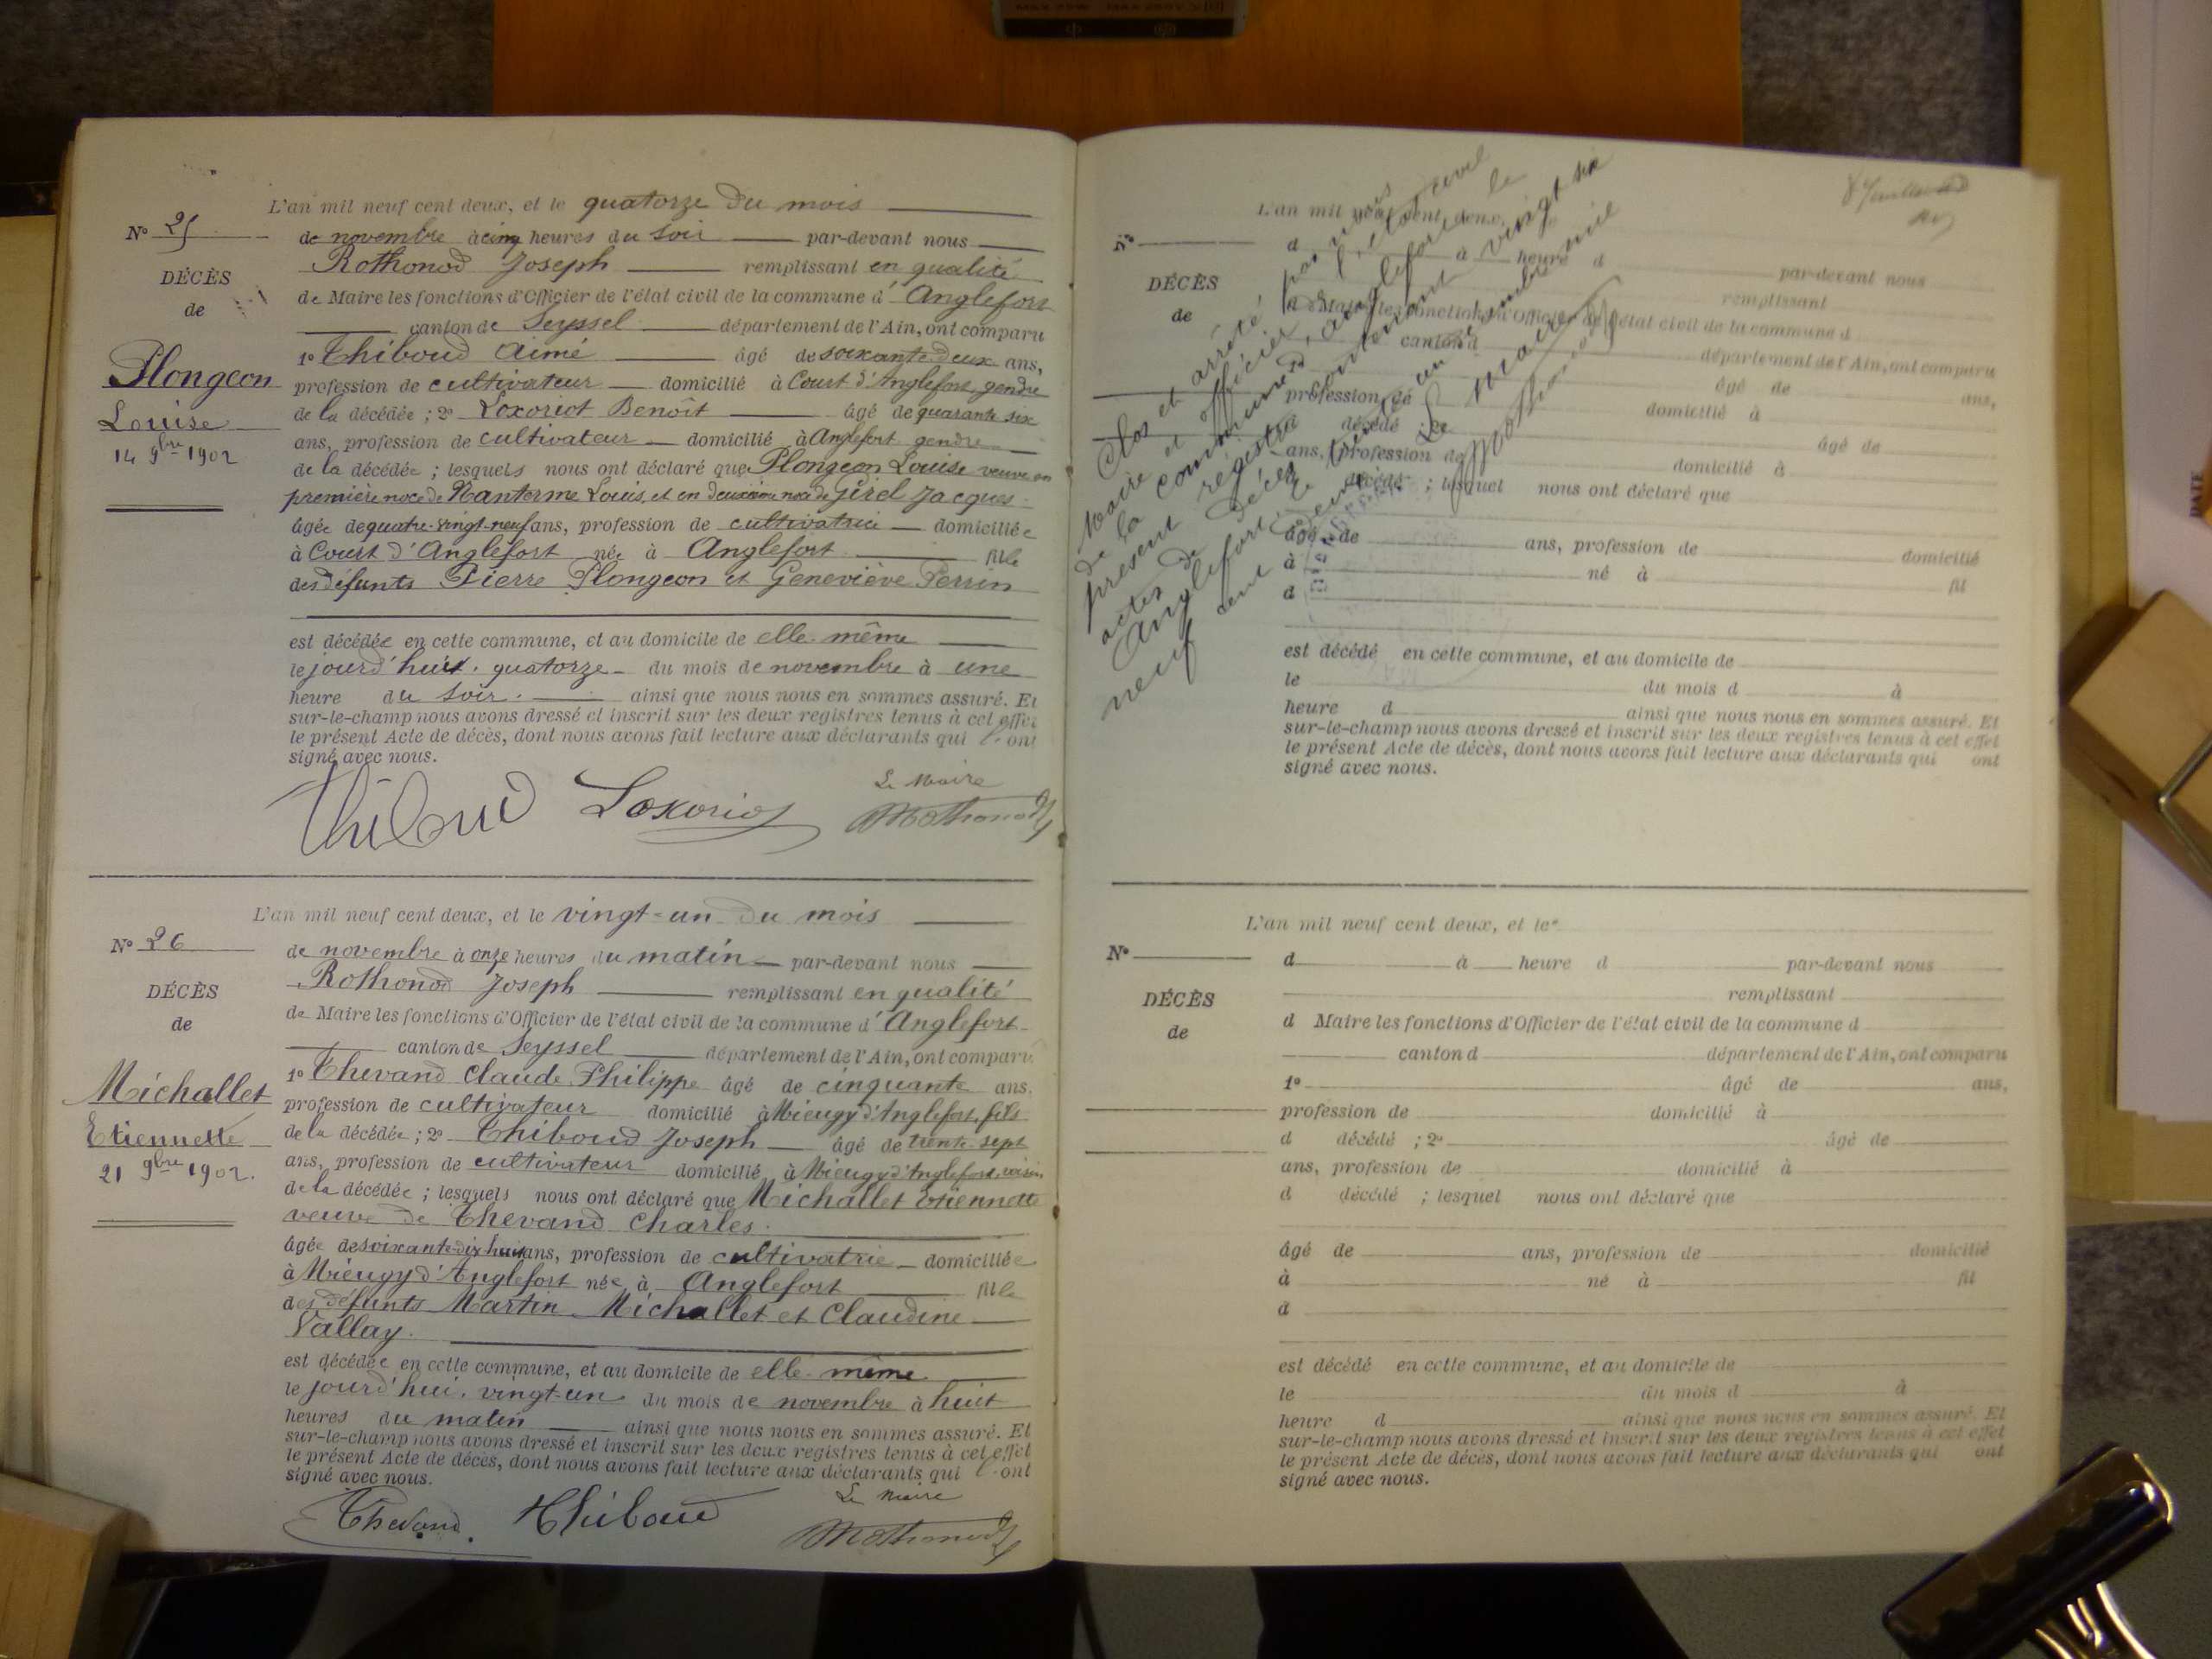 L'an mil neuf cent deux, et le quatorze du mois
N° 25
de novembre à cinq heures du soir par-devant nous
Rothonod Joseph remplissant en qualité
DÉCÈS
de Maire les fonctions d'Officier de l'état civil de la commune d'Anglefort
de
canton de Seyssel département de l'Ain, ont comparu
1° Thiboud Aimé âgé de soixante-deux ans,
Plongeon
profession de cultivateur domicilié à Court d'Anglefort, gendre
Louise
de la décédée ; 2° Loxoriot Benoît âgé de quarante-six
14 9bre 1902
ans, profession de cultivateur domicilié à Anglefort gendre
de la décédée ; lesquels nous ont déclaré que Plongeon Louise veuve en
première noce de Nanterme Louis, et en deuxième noce de Girel Jacques
âgée de quatre-vingt-neuf ans, profession de cultivatrice domiciliée
à Court d'Anglefort née à Anglefort fille
des défunts Pierre Plongeon et Geneviève Perrin
est décédée en cette commune, et au domicile de elle-même
le jourd'hui, quatorze du mois de novembre à une
heure du soir. ainsi que nous nous en sommes assuré. Et
sur-le-champ nous avons dressé et inscrit sur les deux registres tenus à cet effet
le présent Acte de décès, dont nous avons fait lecture aux déclarants qui l'ont
signé avec nous.
Le Maire
Thiboud Loxoriot Rothonod
L'an mil neuf cent deux, et le vingt-un du mois
N° 26
de novembre à onze heures du matin par-devant nous
Rothonod Joseph remplissant en qualité
DÉCÈS
de Maire les fonctions d'Officier de l'état civil de la commune d'Anglefort
de
canton de Seyssel département de l'Ain, ont comparu
1° Thevand Claude Philippe âgé de cinquante ans,
Michallet
profession de cultivateur domicilié à Mieugy d'Anglefort, fils
Etiennette
de la décédée ; 2° Thiboud Joseph âgé de trente-sept
21 9bre 1902.
ans, profession de cultivateur domicilié à Mieugy d'Anglefort, voisin
de la décédée ; lesquels nous ont déclaré que Michallet Etiennette
veuve de Thevand Charles.
âgée de soixante-dix-huit ans, profession de cultivatrice domiciliée
à Mieugy d'Anglefort née à Anglefort fille
des défunts Martin Michallet et Claudine
Vallay.
est décédée en cette commune, et au domicile de elle-même
le jourd'hui, vingt-un du mois de novembre à huit
heures du matin ainsi que nous nous en sommes assuré. Et
sur-le-champ nous avons dressé et inscrit sur les deux registres tenus à cet effet
le présent Acte de décès, dont nous avons fait lecture aux déclarants qui l'ont
signé avec nous.
Le Maire
Thevand. Thiboud Rothonod
Clos et arrêté par nous
Maire et officier de l'état civil
de la commune d'Anglefort, le
présent registre contenant vingt six
actes de décès
Anglefort, le trente un décembre mil
neuf cent deux
Le Maire
Rothonod
L'an mil neuf cent deux,
N°
d à heure d par-devant nous
remplissant
DÉCÈS
d Maire les fonctions d'Officier de l'état civil de la commune d
de
canton d département de l'Ain, ont comparu
âgé de ans,
profession de domicilié à
d décédé ; 2° âgé de
ans, profession de domicilié à
d décédé ; lesquel nous ont déclaré que
âgé de ans, profession de domicilié
à né à fil
d
est décédé en cette commune, et au domicile de
le du mois d à
heure d ainsi que nous nous en sommes assuré. Et
sur-le-champ nous avons dressé et inscrit sur les deux registres tenus à cet effet
le présent Acte de décès, dont nous avons fait lecture aux déclarants qui ont
signé avec nous.
L'an mil neuf cent deux, et le
N°
d à heure d par-devant nous
remplissant
DÉCÈS
d Maire les fonctions d'Officier de l'état civil de la commune d
de
canton d département de l'Ain, ont comparu
1° âgé de ans,
profession de domicilié à
d décédé ; 2° âgé de
ans, profession de domicilié à
d décédé ; lesquel nous ont déclaré que
âgé de ans, profession de domicilié
à né à fil
d
est décédé en cette commune, et au domicile de
le du mois d à
heure d ainsi que nous nous en sommes assuré. Et
sur-le-champ nous avons dressé et inscrit sur les deux registres tenus à cet effet
le présent Acte de décès, dont nous avons fait lecture aux déclarants qui ont
signé avec nous.
DATE